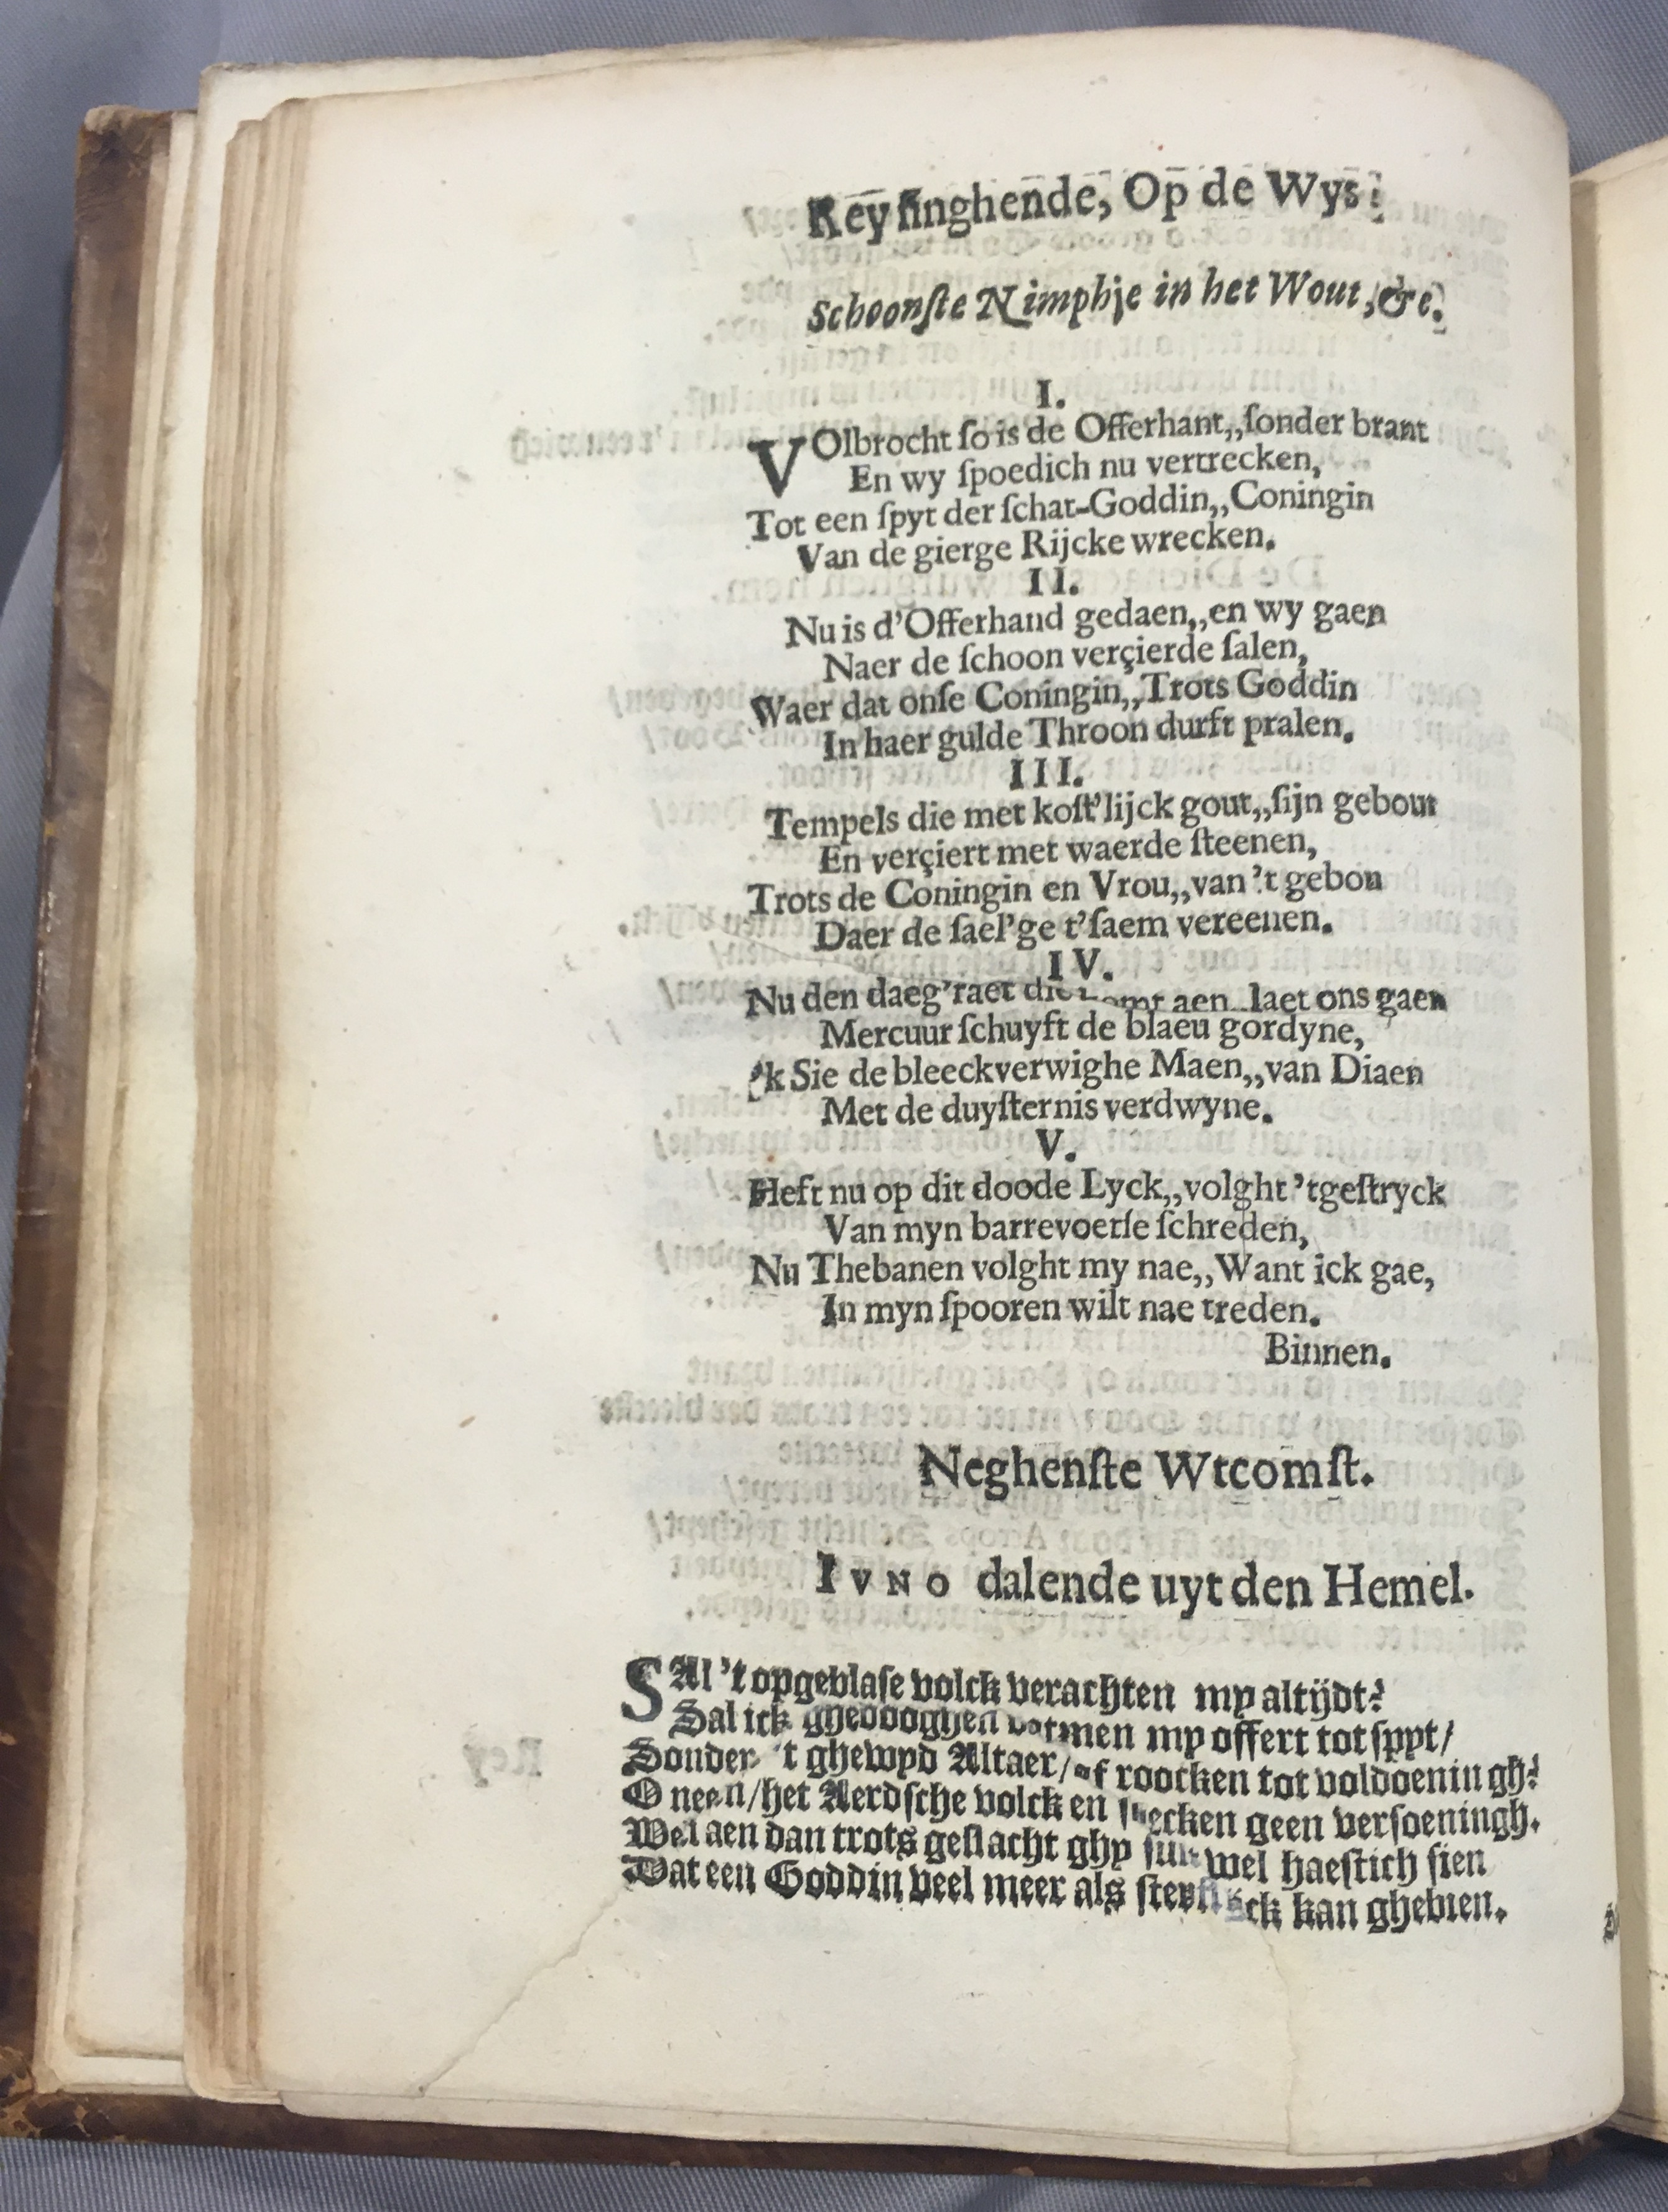 Rey singhende, Op de Wys:
Schoonste Nimphje in het Wout, &c.
I.
VOlbrocht so is de Offerhant,, sonder brant
En wy spoedich nu vertrecken,
Tot een spyt der schat-Goddin,, Coningin
Van de gierge Rijcke wrecken.
II.
Nu is d'Offerhand gedaen,, en wy gaen
Naer de schoon verçierde salen,
Waer dat onse Coningin,, Trots Goddin
In haer gulde Throon durft pralen.
III.
Tempels die met kost'lijck gout,, sijn gebout
En verçiert met waerde steenen,
Trots de Coningin en Vrou,, van 't gebou
Daer de sael'ge t'saem vereenen.
IV.
Nu den daeg'raet die komt aen,, laet ons gaen
Mercuur schuyft de blaeu gordyne,
'k Sie de bleeckverwighe Maen,, van Diaen
Met de duysternis verdwyne.
V.
Heft nu op dit doode Lyck,, volght 't gestryck
Van myn barrevoetse schreden,
Nu Thebanen volght my nae,, Want ick gae,
In myn spooren wilt nae treden.
Binnen.
Neghenste Wtcomst.
IVNO dalende uyt den Hemel.
SAl 't opgeblase volck verachten my altijdt?
Sal ick ghedooghen datmen my offert tot spyt/
Sonder 't ghewyd Altaer/ of roocken tot voldoeningh?
O neen/ het Aerdsche volck en strecken geen versoeningh.
Wel aen dan trots geslacht ghy sult wel haestich sien
Dat een Goddin veel meer als sterflick kan ghebien.